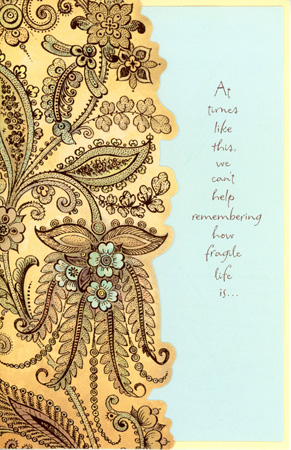 At
times
like
this,
we
can't
help
remembering
how
fragile
life
is...